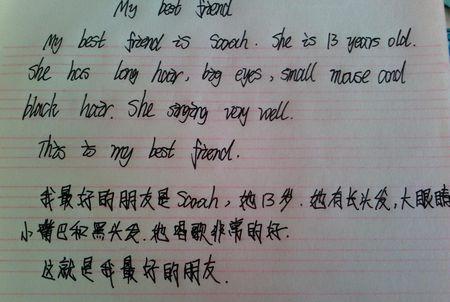 My best friend
My best friend is Sarah. She is 13 years old.
She has long hair, big eyes, small mouse and
black hair. She singing very well.
This is my best friend.
我最好的朋友是Sarah, 她13岁. 她有长头发, 大眼睛
小嘴巴和黑头发. 她唱歌非常的好.
这就是我最好的朋友.